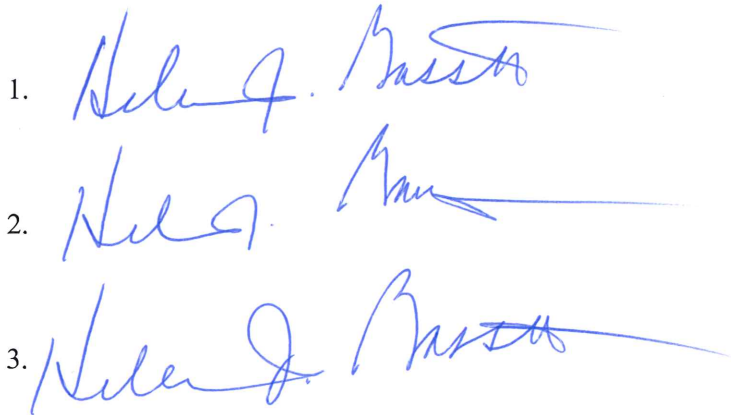 1. Helen J. Bassett
2. Hel J.
3. Helen J. Bassett